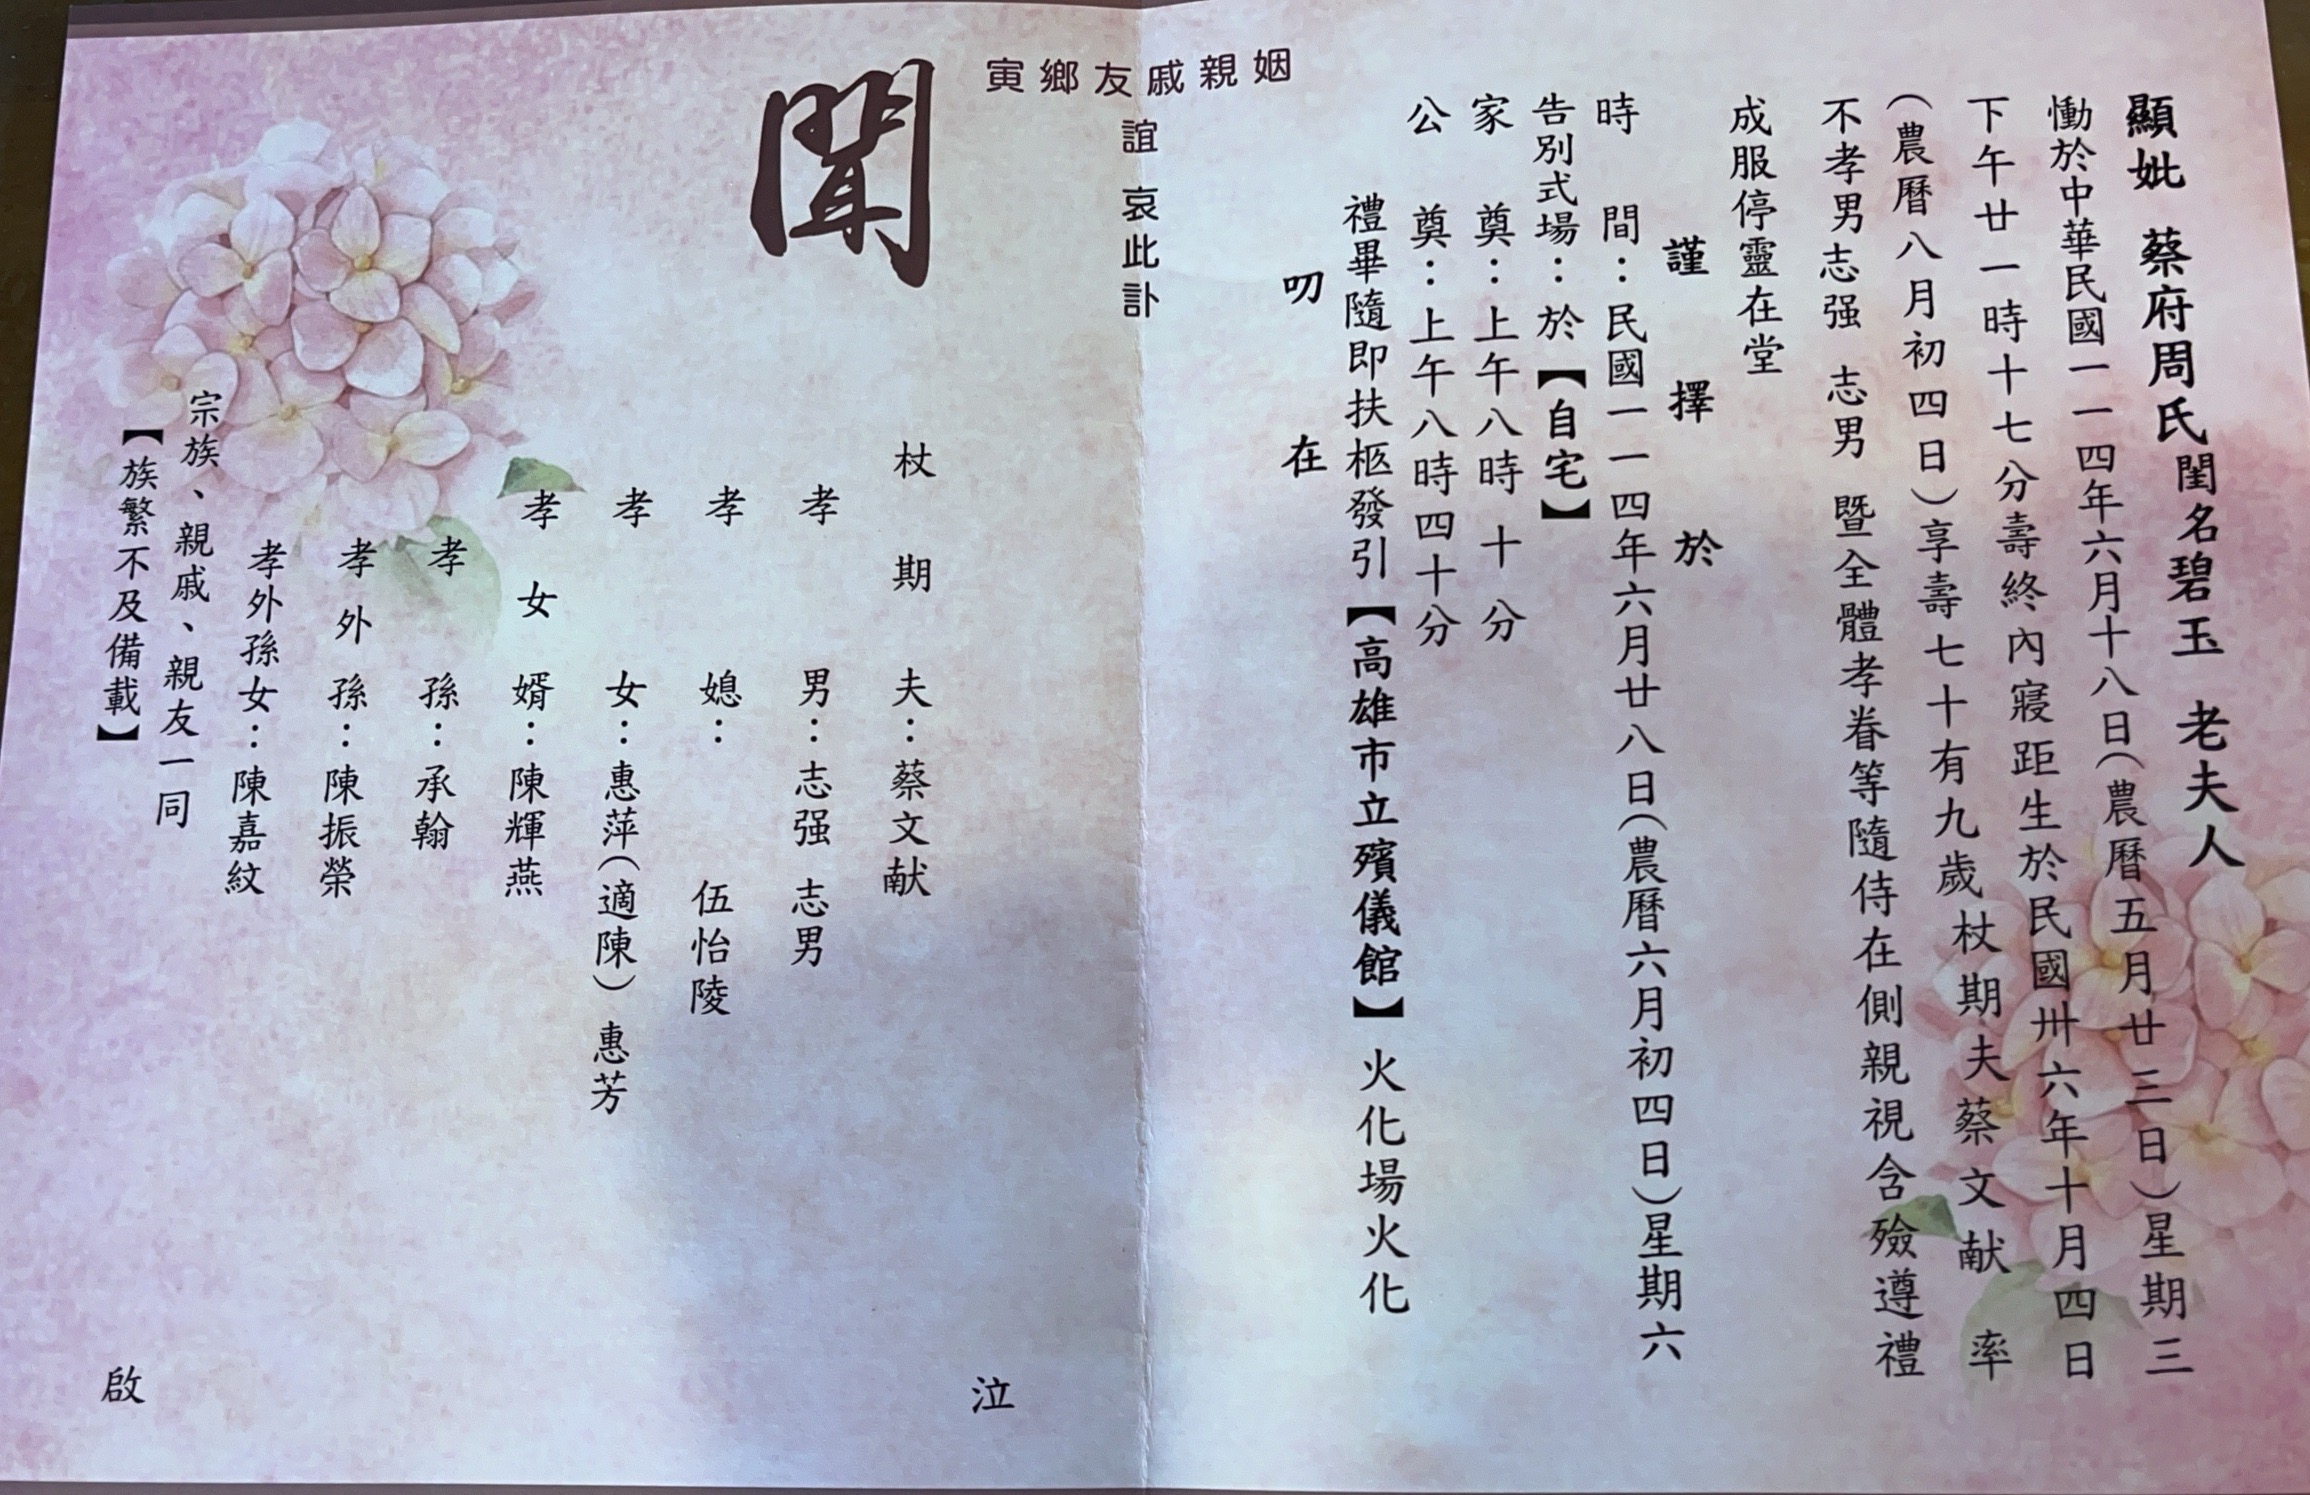 顯妣 蔡府周氏閨名碧玉 老夫人
慟於中華民國一一四年六月十八日(農曆五月廿三日)星期三
下午廿一時十七分壽終內寢距生於民國卅六年十月四日
(農曆八月初四日)享壽七十有九歲杖期夫蔡文献 率
不孝男志强 志男 暨全體孝眷等隨侍在側親視含殮遵禮
成服停靈在堂
謹擇於
時間：民國一一四年六月廿八日(農曆六月初四日)星期六
告別式場：於【自宅】
家奠：上午八時十分
公奠：上午八時四十分
禮畢隨即扶柩發引【高雄市立殯儀館】火化場火化
叨在
姻親戚友鄉寅
誼 哀此訃
聞
泣
杖期夫：蔡文献
孝男：志强 志男
孝媳： 伍怡陵
孝女：惠萍(適陳) 惠芳
孝女婿：陳輝燕
孝孫：承翰
孝外孫：陳振榮
孝外孫女：陳嘉紋
宗族、親戚、親友一同
【族繁不及備載】
啟